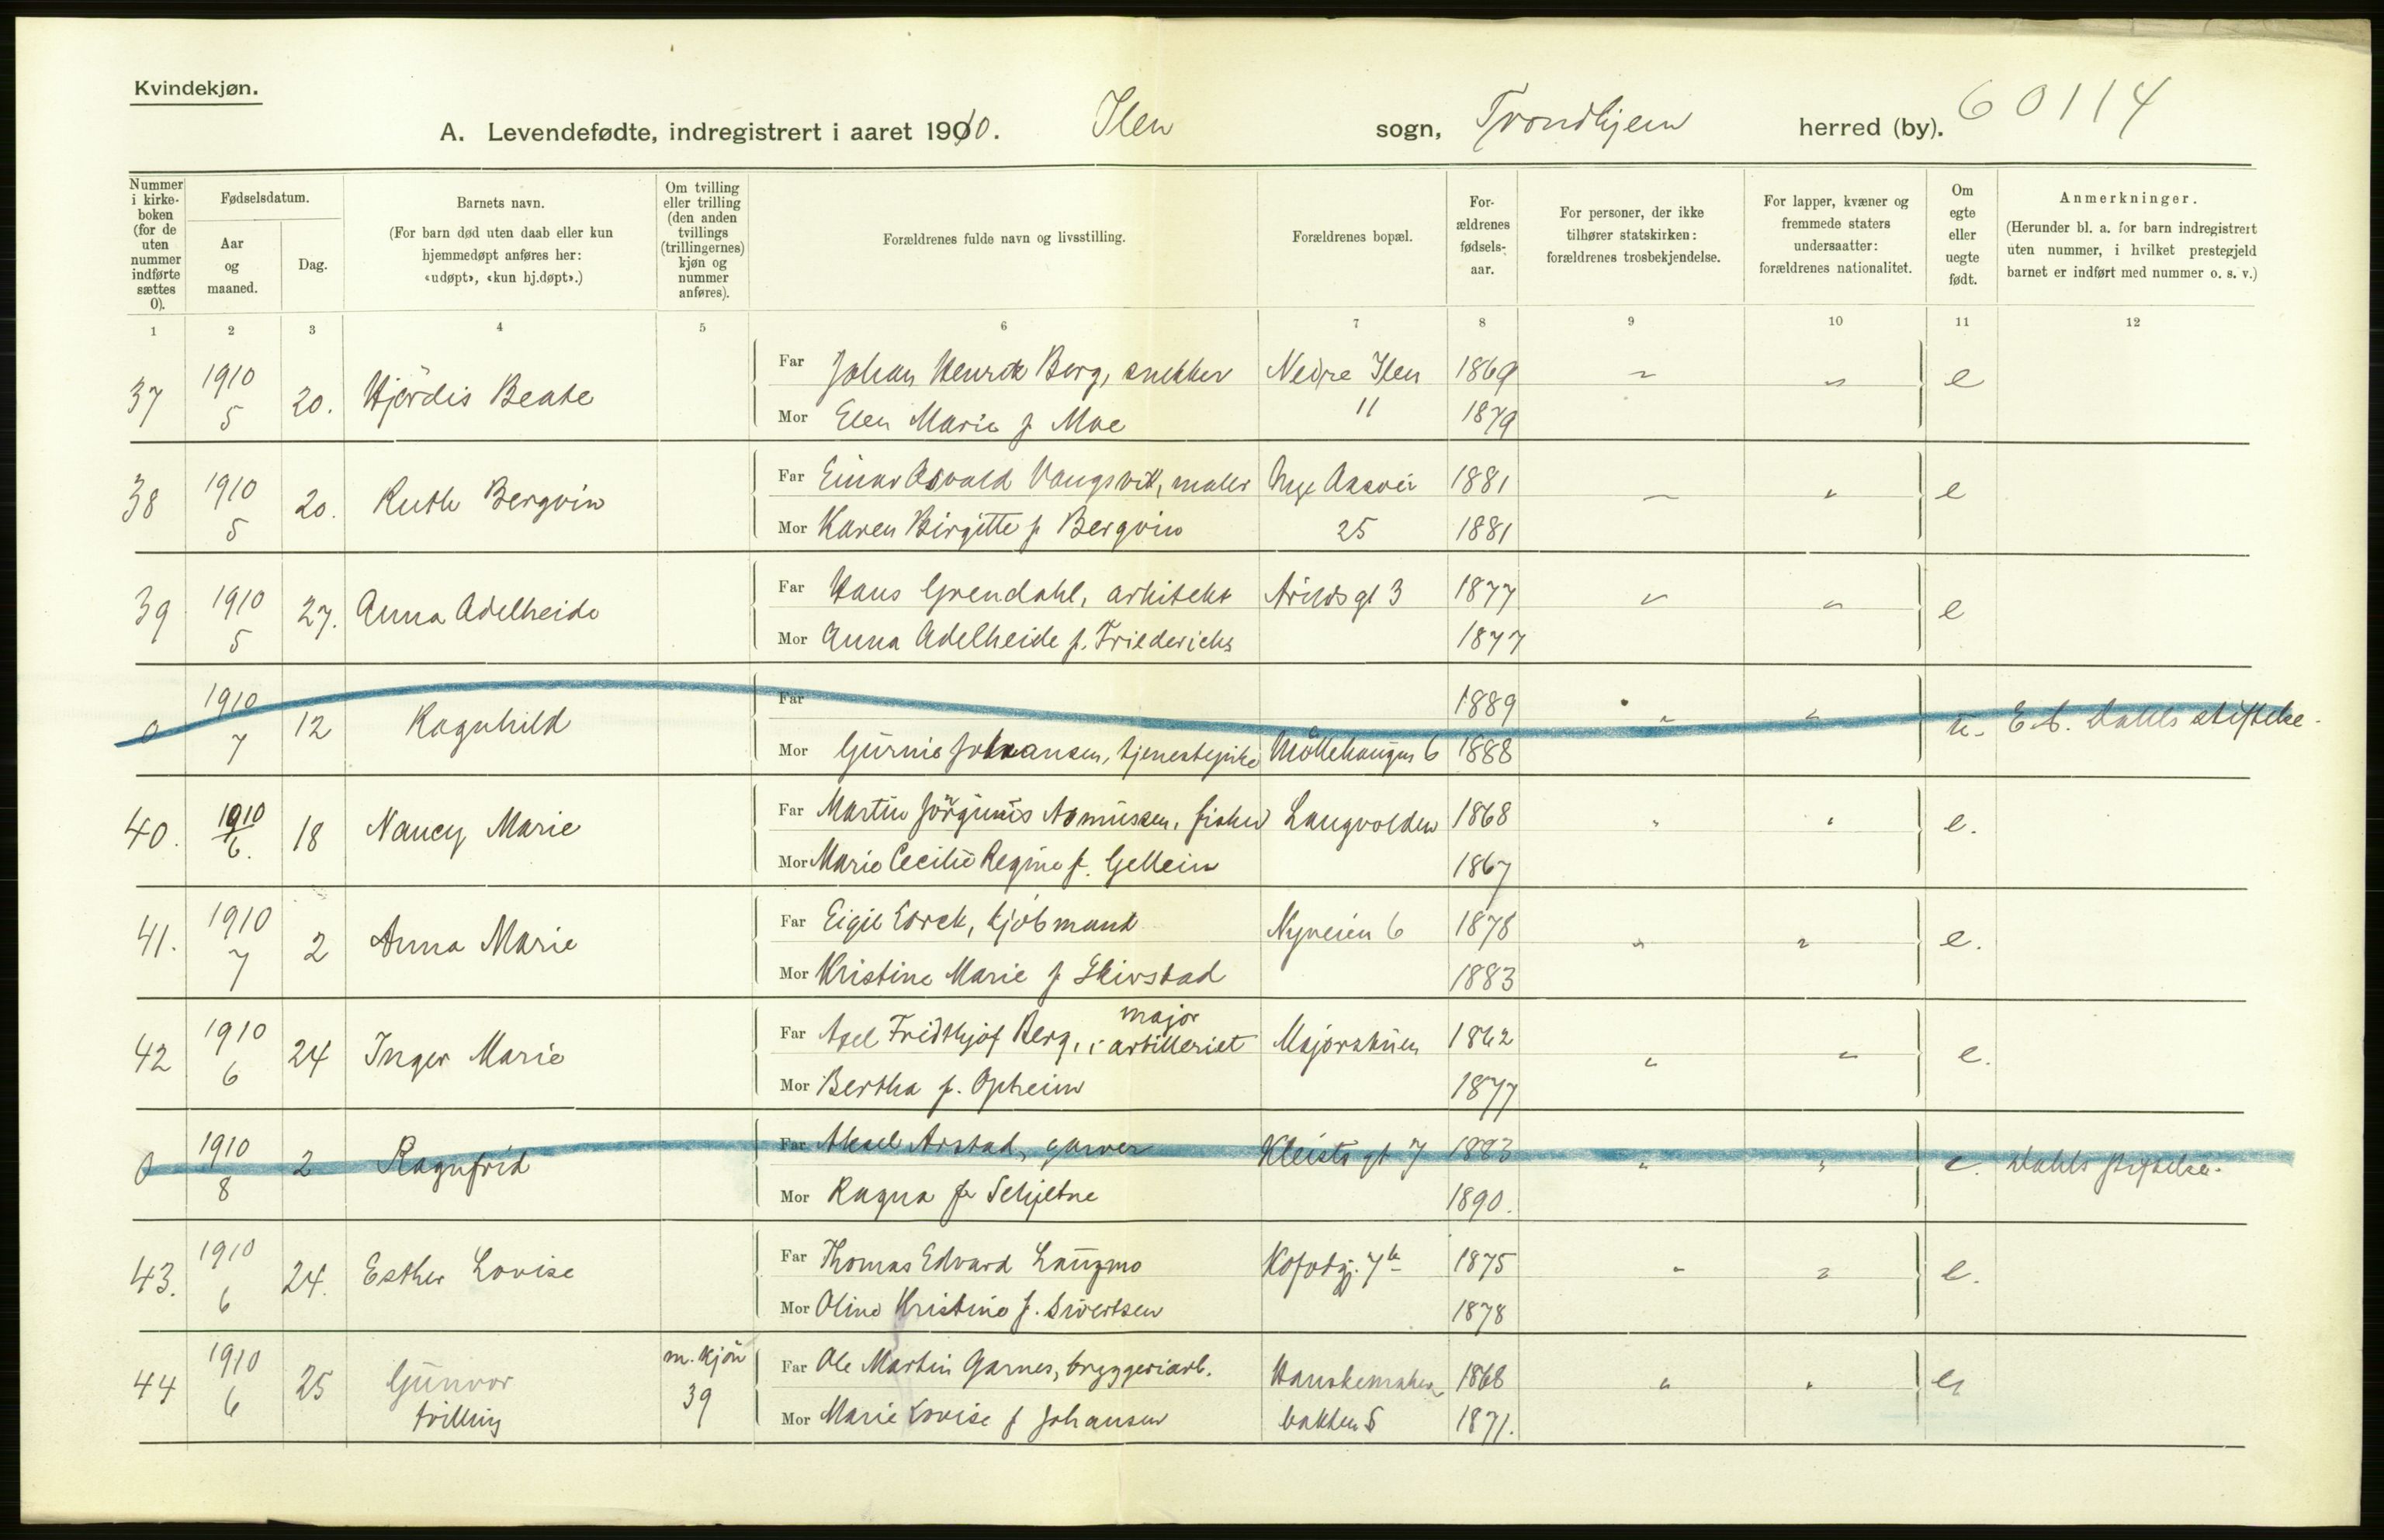 Kvindekjøn.
A. Levendefødte, indregistrert i aaret 1910. Ilen sogn, Trondhjem herred (by). 60114
Nummer i kirke-boken (for de uten nummer indførte sættes 0).
Fødselsdatum.
Aar og maaned.
Dag.
Barnets navn.
(For barn død uten daab eller kun hjemmedøpt anføres her: «udøpt», «kun hj.døpt».)
Om tvilling eller trilling (den anden tvillings (trillingernes) kjøn og nummer anføres).
Forældrenes fulde navn og livsstilling.
Forældrenes bopæl.
For-ældrenes fødsels-aar.
For personer, der ikke tilhører statskirken: forældrenes trosbekjendelse.
For lapper, kvæner og fremmede staters undersaatter: forældrenes nationalitet.
Om egte eller uegte født.
Anmerkninger.
(Herunder bl. a. for barn indregistrert uten nummer, i hvilket prestegjeld barnet er indført med nummer o. s. v.)
1 2 3 4 5 6 7 8 9 10 11 12
37 1910 5 20. Hjördis Beate
Far Johan Henrik Berg, snekker Nedre Ilen 1869 " " e
Mor Elen Marie f. Moe " 1879
38 1910 5 20. Ruth Bergvin
Far Einar Osvald Vangsvik, maler Nye Aasvei 1881 " " e
Mor Karen Birgitte f. Bergvin 25 1881
39 1910 5 27. Anna Adelheide
Far Hans Grendahl, arkitekt Arilds gt 3 1877 " " e
Mor Anna Adelheide f. Friederichs 1877
0 1910 7 12 Ragnhild
Far 1889 " " u. E. C. Dahls stiftelse.
Mor Johansen, tjenestepike Möllehaugen 6 1888
40. 1910 6. 18 Nancy Marie
Far Martin Jörginus Asmussen, fisker Langvolden 1868 " " e.
Mor Marie Cecilie Regine f. Gellein 1867
41. 1910 7 2 Anna Marie
Far Eigil Lorck, kjöbmand Nyveien 6 1878 " " e.
Mor Kristine Marie f. Skivstad 1883
42 1910 6 24 Inger Marie
Far Axel Fridthjof Berg, major i artilleriet Majorstuen 1862 " " e.
Mor Bertha f. Opheim 1877
0 1910 8 2 Ragnfrid
Far Aksel Arstad, garver Kleists gt 7 1883 " " e. Dahls stiftelse.
Mor Ragna f. Schjetne 1890.
43. 1910 6 24. Esther Lovise
Far Thomas Edvard Langmo Kofodgj. 7b 1875 " " e.
Mor Oline Kristine f. Sivertsen 1878
44 1910 6 25 Gunvor tvilling m. kjön 39
Far Ole Martin Garnes, bryggeriarb. Hanskemaker 1868 " " e
Mor Marie Lovise f Johansen bakken 5 1871.